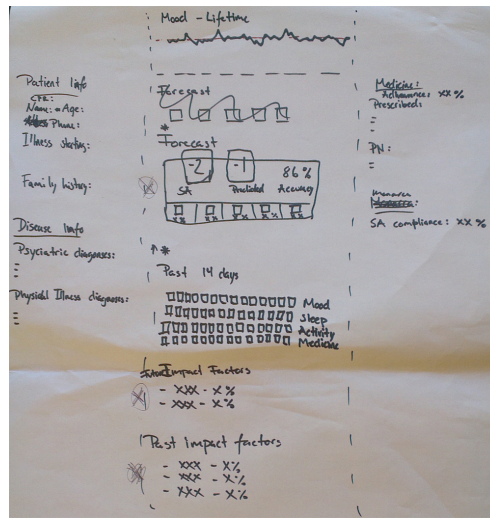 Mood - Lifetime
Patient Info
CPR:
Name: Age:
Phone:
Illness starting:
Family history:
Disease Info
Psyciatric diagnoses:
Physical Illness diagnoses:
Forecast
*
Forecast
-2 -1 86%
SA Predicted Accuracy
XX XX XX XX XX
↑ *
Past 14 days
Mood
Sleep
Activity
Medicine
Impact Factors
- XXX - X%
- XXX - X%
Past impact factors
- XXX - X%
- XXX - X%
- XXX - X%
Medicine:
Adherance: XX%
Prescribed:
PN:
SA compliance: XX%